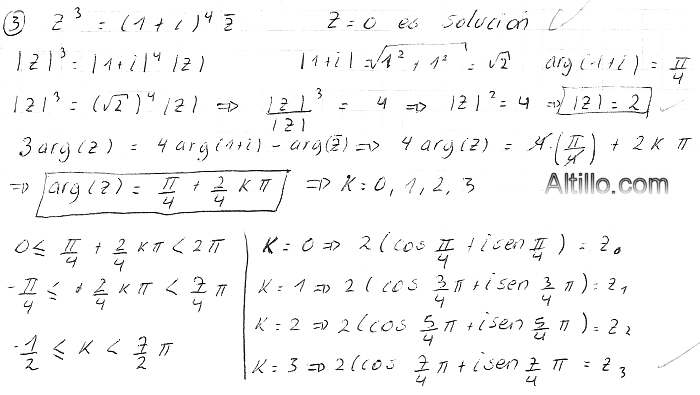 ③ z³ = (1+i)⁴ z̄     z=0 es solución
|z|³ = |1+i|⁴ |z|     |1+i| = √(1²+1²) = √2     arg(1+i) = π/4
|z|³ = (√2)⁴ |z| ⇒ |z|³/|z| = 4 ⇒ |z|² = 4 ⇒ |z| = 2
3 arg(z) = 4 arg(1+i) - arg(z̄) ⇒ 4 arg(z) = 4.(π/4) + 2kπ
⇒ arg(z) = π/4 + 2/4 kπ ⇒ k = 0, 1, 2, 3
Altillo.com
0 ≤ π/4 + 2/4 kπ < 2π
-π/4 ≤ + 2/4 kπ < 7/4 π
-1/2 ≤ k < 7/2 π
k = 0 ⇒ 2(cos π/4 + i sen π/4) = z₀
k = 1 ⇒ 2(cos 3/4 π + i sen 3/4 π) = z₁
k = 2 ⇒ 2(cos 5/4 π + i sen 5/4 π) = z₂
k = 3 ⇒ 2(cos 7/4 π + i sen 7/4 π = z₃